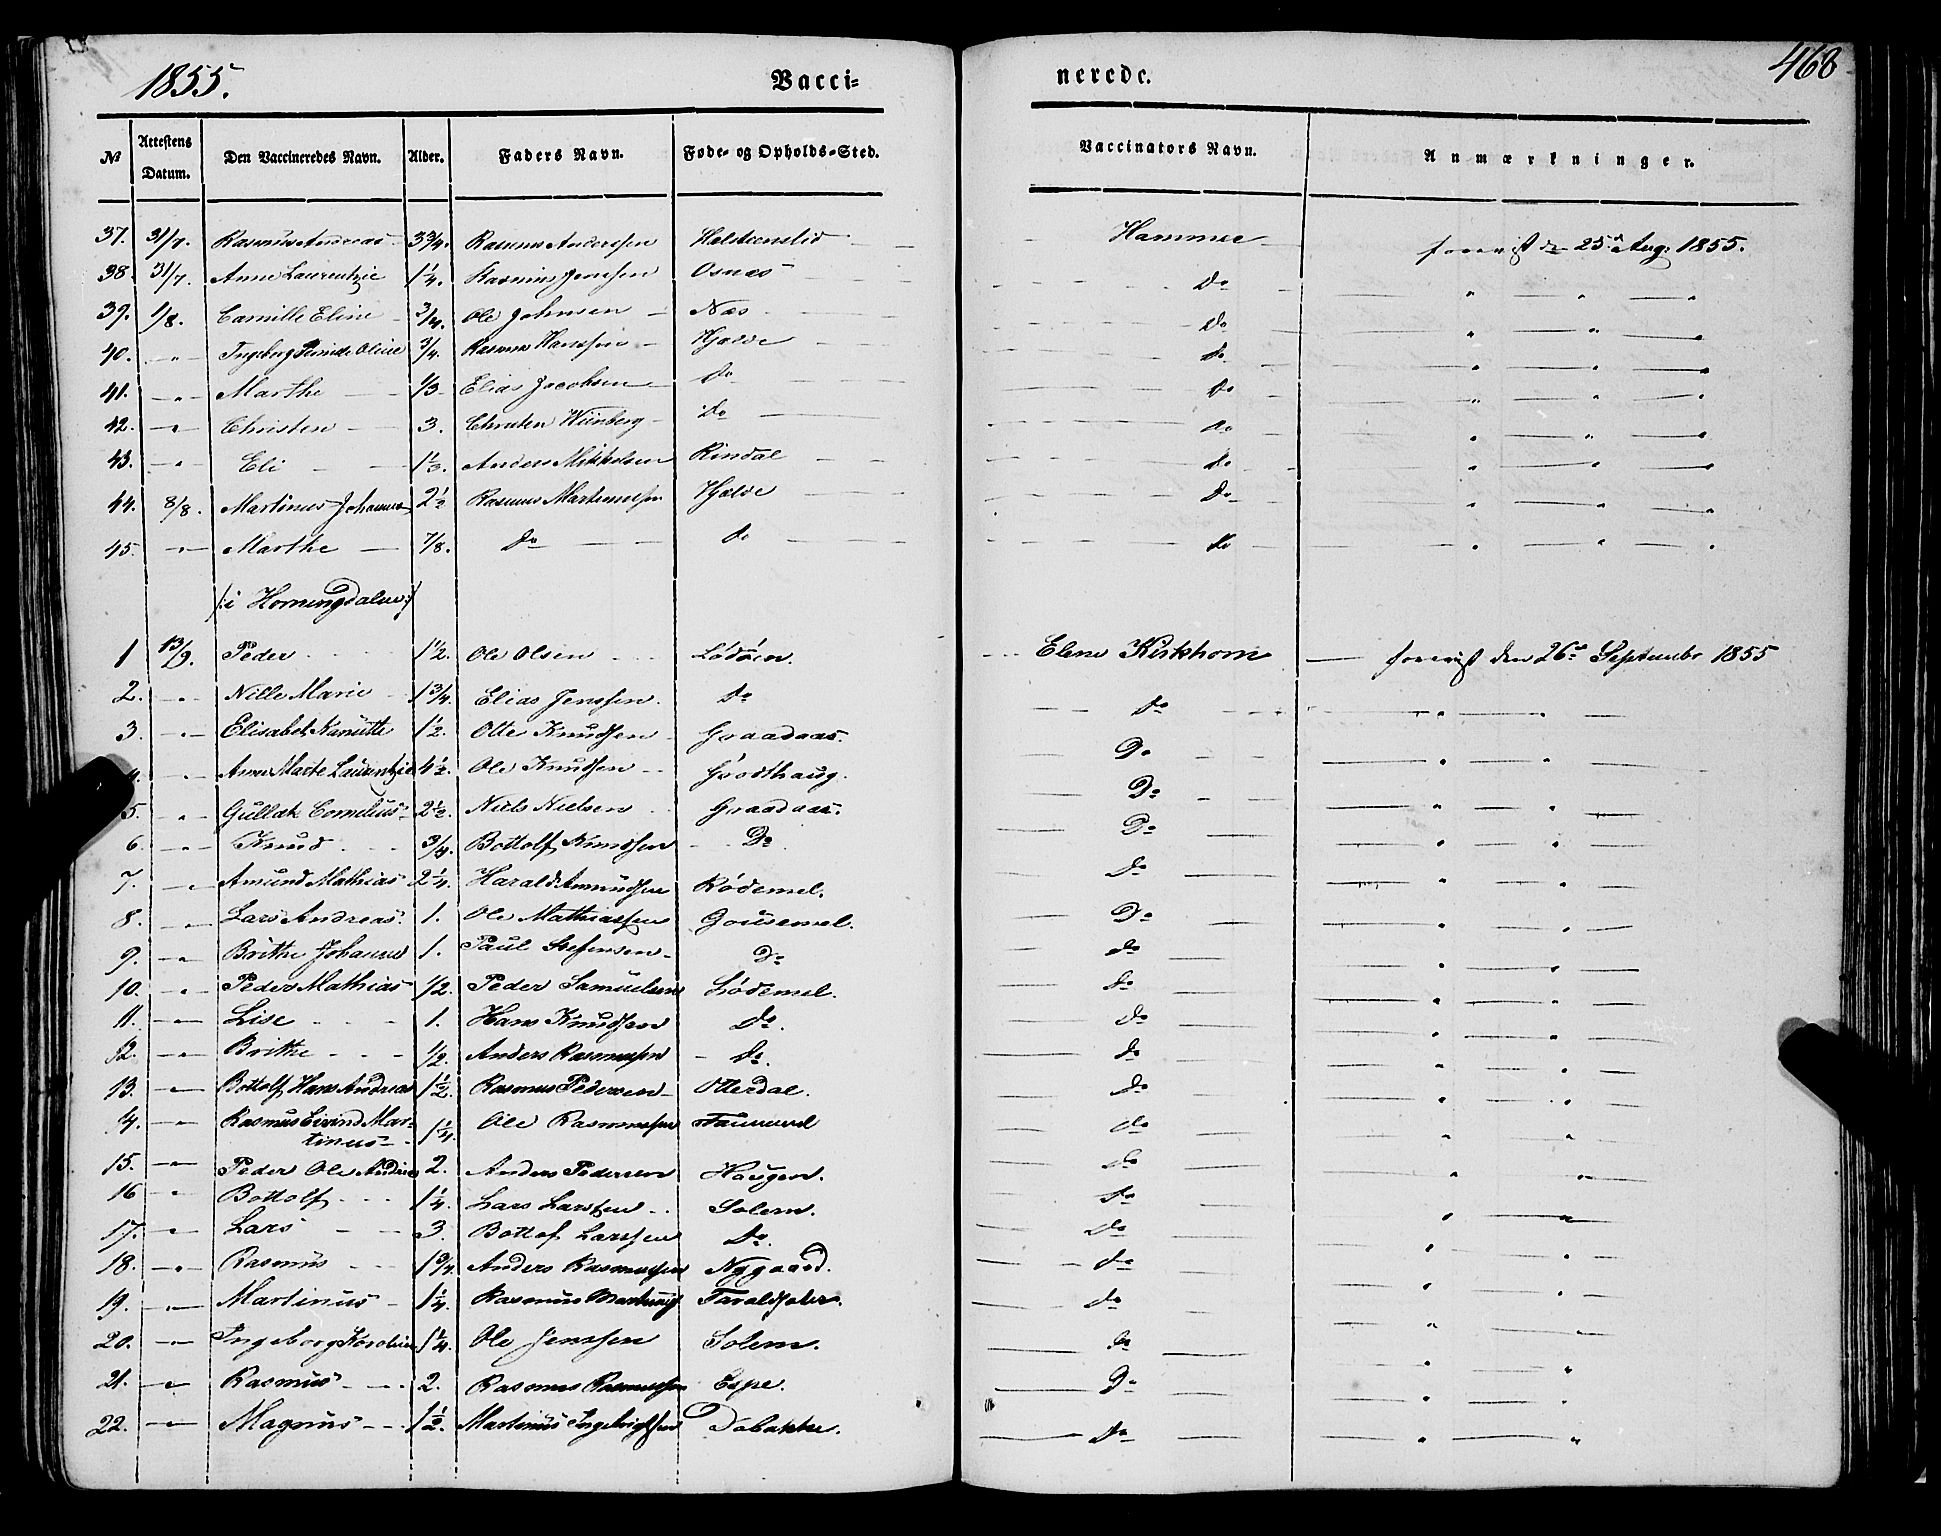 1855. Vacci= nerede. 468
№ Attestens Datum. Den Vaccineredes Navn. Alder. Faders Navn. Føde- og Opholds-Sted. Vaccinators Navn. Anmærkninger.
37. 31/7. Rasmus Andreas 3 3/4. Rasmus Anderssen Halsteenslid Hammer foreviist den 25de Aug: 1855.
38. 31/7. Anne Laurentzie 1 1/4. Rasmus Jenssen Osnes Do " " "
39. 1/8. Camille Eline 3/4. Ole Johnsen Næs Do " " "
40. " Ingeborg Oline 3/4. Rasmus Hanssen Hjelde do " " "
41. " Marthe 1/3 Elias Jacobsen do do " " "
42. " Christen 3. Christen Wiinberg Do do " " "
43. " Eli 1 1/3. Anders Mikkelsen Rindal do " " "
44. 8/8. Martinus Johannes 2 1/2 Rasmus Martinussen Hjelde Do " " "
45. " Marthe 7/8. Do do do " " "
/:i Horningdalen:/
1 13/9. Peder 1 1/2. Ole Olsen Lødøen. Elene Kirkhorn foreviist den 26de September 1855
2. " Nille Marie 1 3/4. Elias Jenssen. do do " "
3. " Elisabet Nanette 1 1/2. Otte Knudsen Graadaas. Do " "
4. " Anne Marte Laurentzie 4 1/2. Ole Knudsen Grodthaug. Do " "
5. " Gullak Cornelius 2 1/2. Niels Nielsen Graadaas. Do " "
6. " Knud 3/4. Bottolf Knudsen Do do " "
7. " Amund Mathias 2 1/4. Harald Amundsen Rødemel. Do " "
8. " Lars Andreas. 1. Ole Mathiassen Gousemel. do " "
9. " Brithe Johanne 1. Paul Stefensen Do do " "
10. " Peder Mathias 1/2. Peder Samuelsen Lødemel. do " "
11. " Lise 1. Hans Knudsen Do. do " "
12. " Brithe 1/2. Anders Rasmussen Do. do " "
13. " Bottolf Hans Andreas 1 1/2. Rasmus Pedersen Otterdal. do " "
14. " Rasmus Eivind Mar=
tinus 1 1/4. Ole Rasmussen do " "
15. " Peder Ole Andreas 2. Anders Pedersen Haugen. do " "
16 " Bottolf 1 1/4. Lars Larssen Solem. do " "
17. " Lars 3. Bottof Larssen Do. do " "
18. " Rasmus 1 3/4. Anders Rasmussen Nygaard. do " "
19. " Martinus 1 1/4. Rasmus Taraldsæter. do " "
20. " Ingeborg 1 1/4. Ole Jenssen Solem. do " "
21. " Rasmus 2. Rasmus Rasmussen Espe. Do " "
22. " Magnus 1 1/2. Martinus Ingebrigtsen Dobakke. do " "